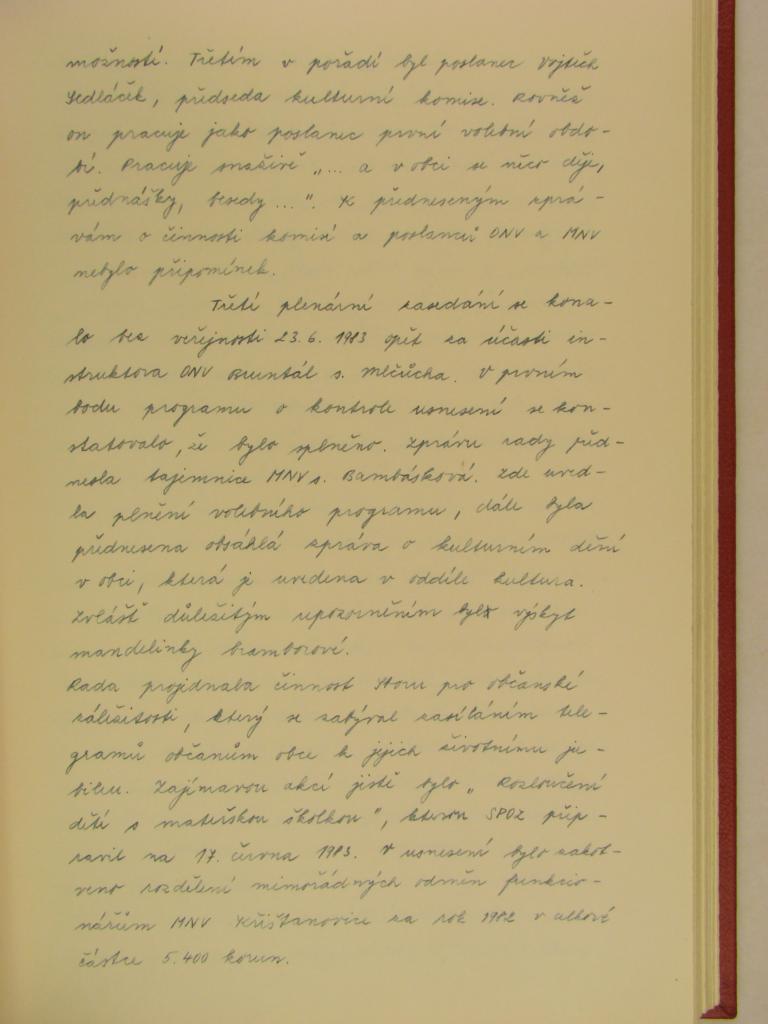 možností. Třetím v pořadí byl poslanec Vojtěch
Sedláček, předseda kulturní komise. Rovněž
on pracuje jako poslanec první volební obdo-
bí. Pracuje snaživě „... a v obci se něco děje,
přednášky, besedy ...". K předneseným zprá-
vám o činnosti komisí a poslanců ONV a MNV
nebylo připomínek.
Třetí plenární zasedání se kona-
lo bez veřejnosti 23.6. 1983 opět za účasti in-
struktora ONV Bruntál s. Mlčůcha. V prvním
bodu programu o kontrole usnesení se kon-
statovalo, že bylo splněno. Zprávu rady před-
nesla tajemnice MNV s. Bambásková. Zde uved-
la plnění volebního programu, dále byla
přednesena obsáhlá zpráva o kulturním dění
v obci, která je uvedena v oddíle kultura.
Zvláště důležitým upozorněním byl výskyt
mandelinky bramborové.
Rada projednala činnost Sboru pro občanské
záležitosti, který se zabýval zasíláním tele-
gramů občanům obce k jejich životnímu ju-
bileu. Zajímavou akcí jistě bylo „Rozloučení
dětí s mateřskou školkou", kterou SPOZ přip-
ravil na 17. června 1983. V usnesení bylo zakot-
veno rozdělení mimořádných odměn funkcio-
nářům MNV Křišťanovice za rok 1982 v celkové
částce 5.400 korun.